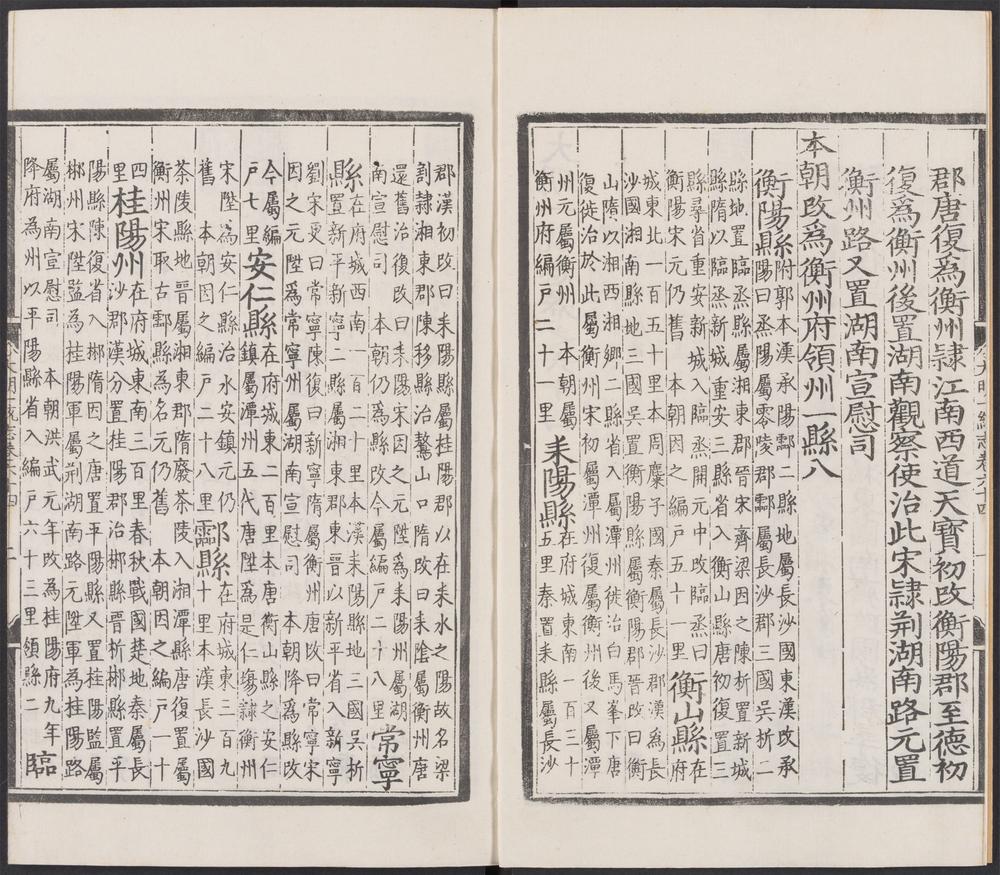 大明一統志卷六十四
郡唐復爲衡州隷江南西道天寶初改衡陽郡至德初
復爲衡州後置湖南觀察使治此宋隷荆湖南路元置
衡州路又置湖南宣慰司
本朝改爲衡州府領州一縣八
衡陽縣附郭本漢承陽酃二縣地屬長沙國東漢改承
陽曰烝陽屬零陵郡酃屬長沙郡三國吳析二
縣地置臨烝縣屬湘東郡晉宋齊梁因之陳析置新城
縣隋以臨烝新城重安三縣省入衡山縣唐初復置三
縣尋省重安新城入臨烝開元中改臨烝曰
衡陽宋元仍舊 本朝因之編戸五十一里 衡山縣在府
城東北一百五十里本周麋子國秦屬長沙郡漢爲長
沙國湘南縣地三國吳置衡陽縣屬衡陽郡晉改曰衡
山隋以湘西湘鄉二縣省入屬潭州徙治白馬峯下唐
復徙治於此屬衡州宋初屬潭州復屬衡州後又屬潭
州元屬衡州 本朝屬
衡州府編戸二十一里 耒陽縣在府城東南一百三十
五里秦置耒縣屬長沙
郡漢初改曰耒陽縣屬桂陽郡以在耒水之陽故名梁
割隷湘東郡陳移縣治鼇山口隋改曰耒陰屬衡州唐
還舊治復改曰耒陽宋因之元陞爲耒陽州屬湖
南宣慰司 本朝仍爲縣改今屬編戸二十八里 常寧
縣在府城西南一百二十里本漢耒陽縣地三國吳析
置新平新寧二縣屬湘東郡東晉以新平省入新寧
劉宋更曰常寧陳復曰新寧隋屬衡州唐改曰常寧宋
因之元陞爲常寧州屬湖南宣慰司 本朝降爲縣改
今屬編
戸七里 安仁縣在府城東二百里本唐衡山縣之安仁
鎮屬潭州五代唐陞爲是仁塲隷衡州
宋陞為安仁縣治永安鎮元仍
舊 本朝因之編戸二十八里 酃縣在府城東三百九
十里本漢長沙國
茶陵縣地晉屬湘東郡隋廢茶陵入湘潭縣唐復置屬
衡州宋取古酃縣爲名元仍舊 本朝因之編戸一十
四
里 桂陽州在府城東南三百里春秋戰國楚地秦屬長
沙郡漢分置桂陽郡治郴縣晉析郴縣置平
陽縣陳復省入郴隋因之唐置平陽縣又置桂陽監屬
郴州宋陞監為桂陽軍屬荆湖南路元陞軍為桂陽路
屬湖南宣慰司 本朝洪武元年改為桂陽府九年
降府為州以平陽縣省入編戸六十三里領縣二 臨